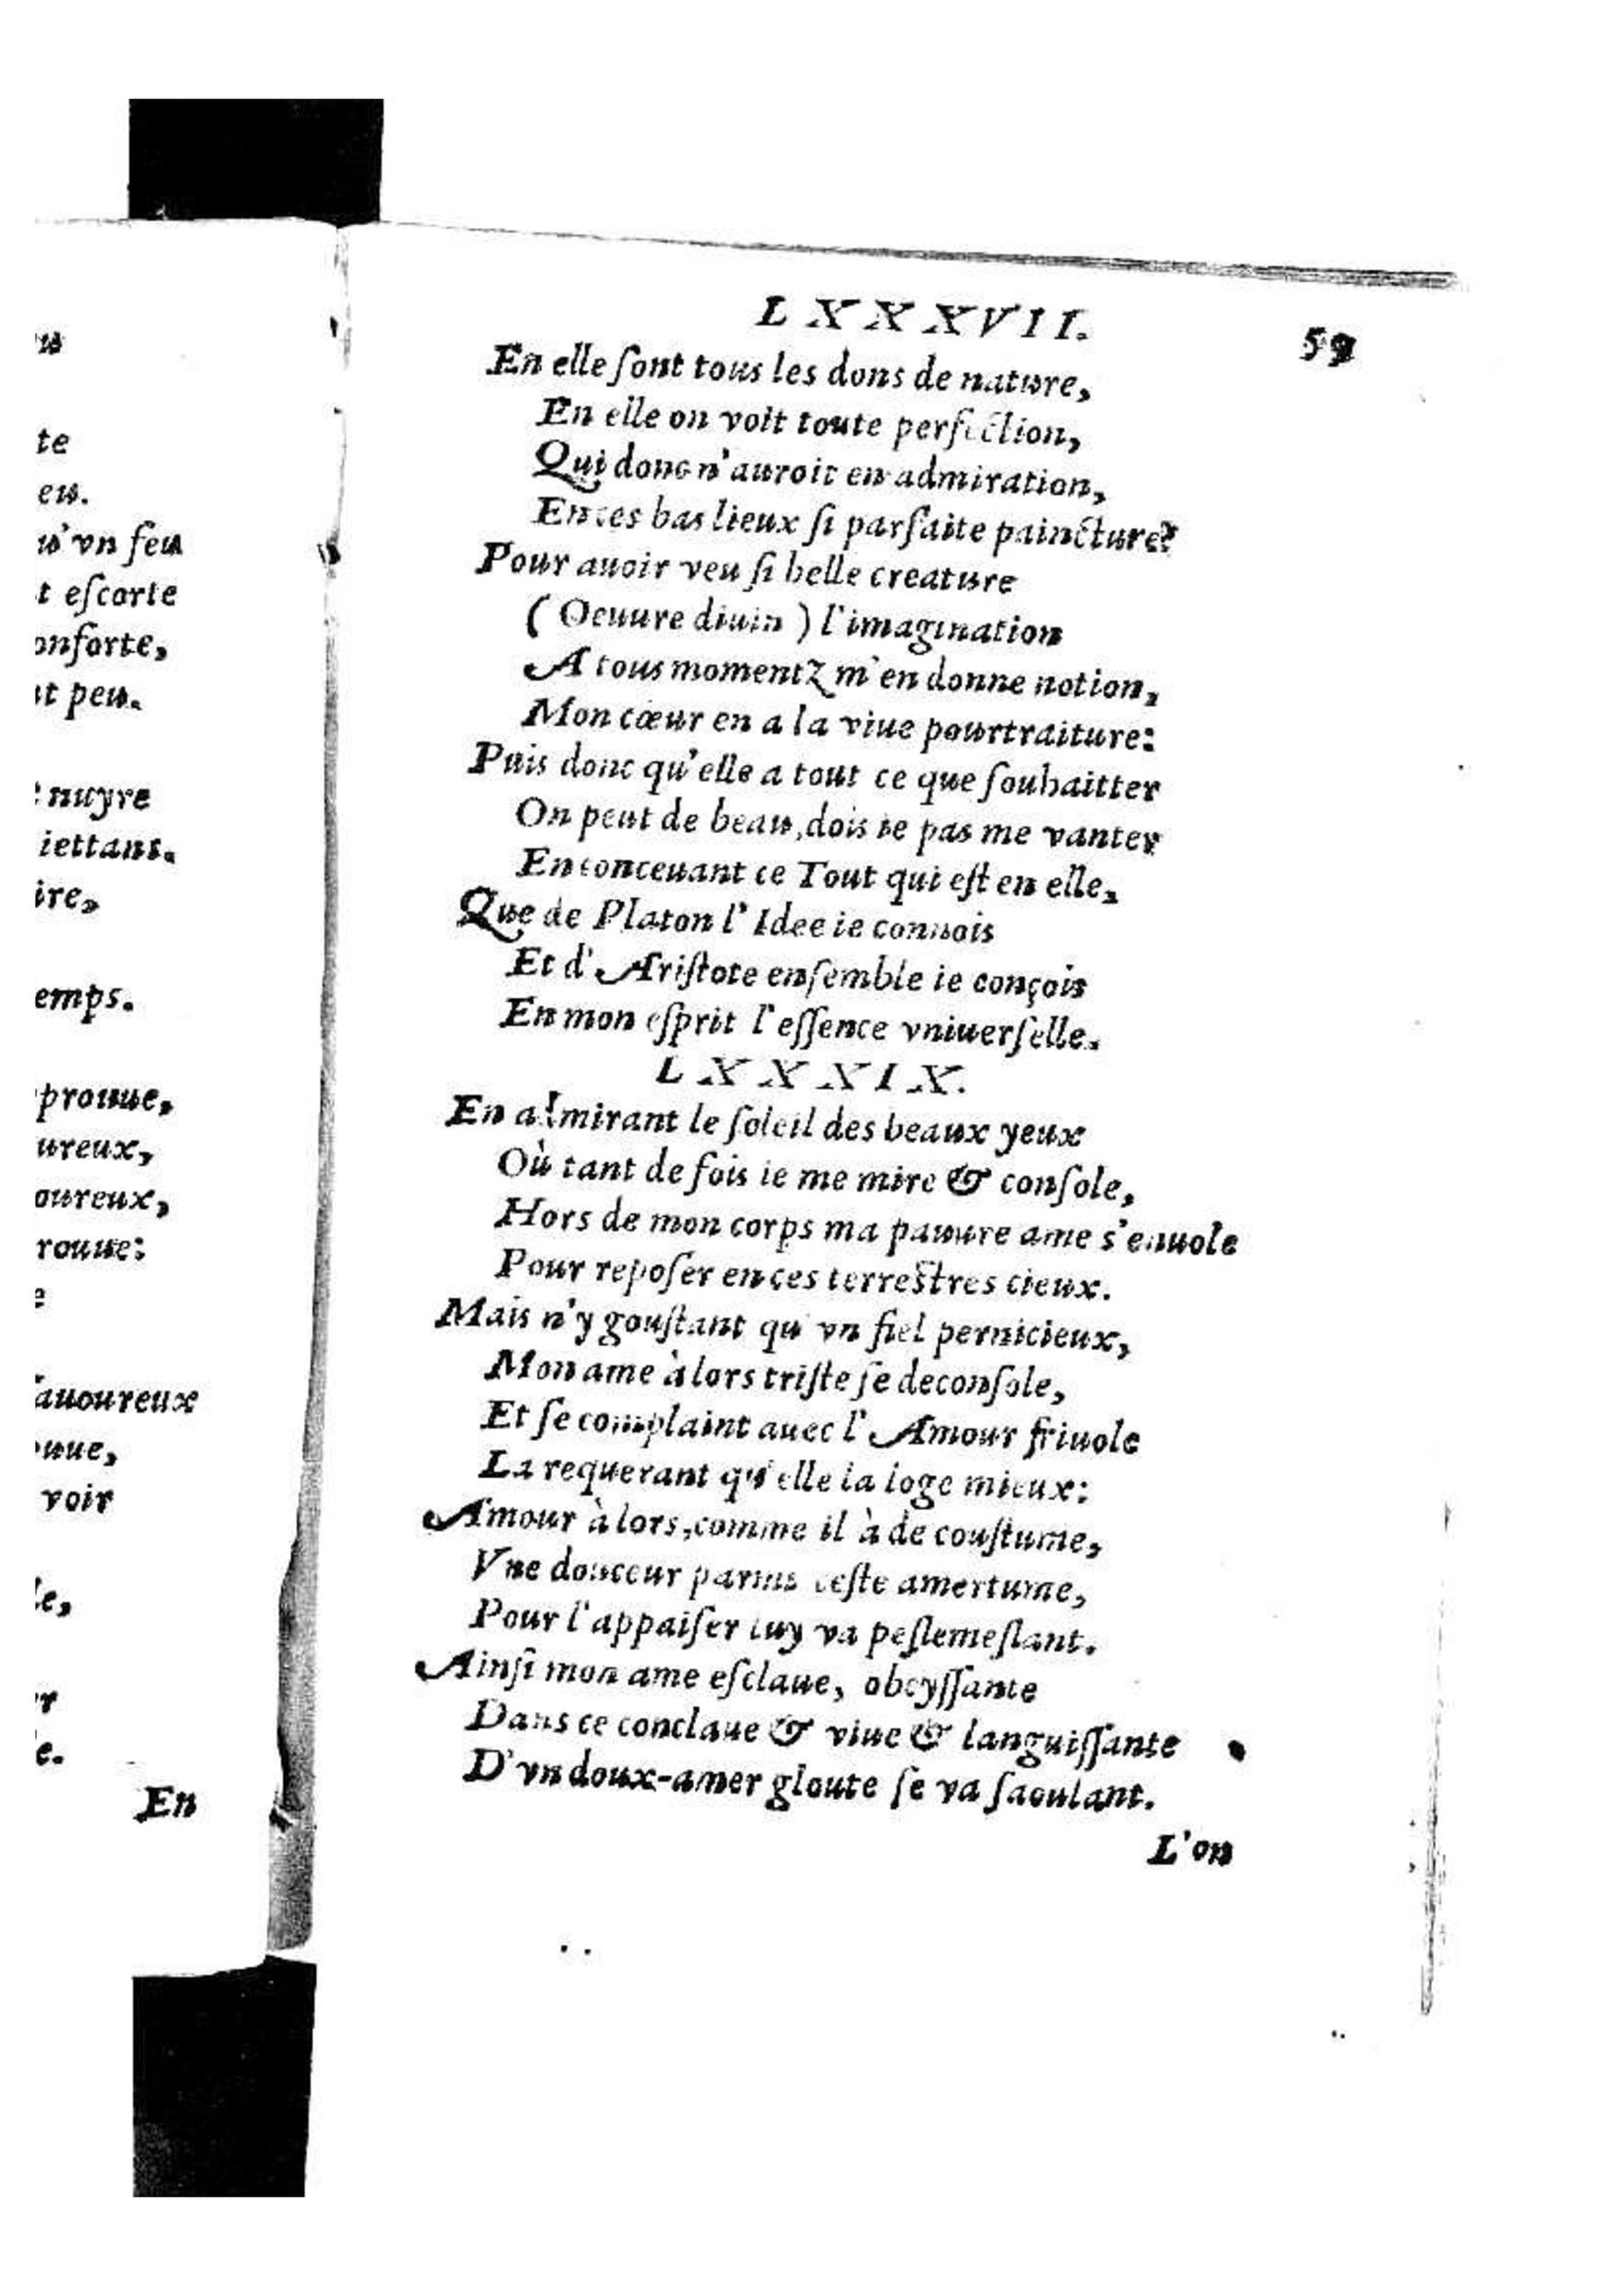 us
te
eu.
u'vn feu
t eſcorte
onforte,
ut peu.
nuyre
iettans.
ire,
emps.
prouue,
ureux,
oureux,
rouue:
e
ſauoureux
ouue,
voir
le,
er
e.
En
LXXXVII.
59
En elle ſont tous les dons de nature,
En elle on voit toute perfection,
Qui donc n'auroit en admiration,
En ces bas lieux ſi parfaite paincture?
Pour auoir veu ſi belle creature
(Oeuure diuin) l'imagination
A tous momentz m'en donne notion,
Mon cœur en a la viue pourtraiture:
Puis donc qu'elle a tout ce que ſouhaitter
On peut de beau, dois ie pas me vanter
En conceuant ce Tout qui eſt en elle,
Que de Platon l'Idee ie connois
Et d'Ariſtote enſemble ie conçois
En mon eſprit l'eſſence vniuerſelle.
LXXXIX.
En admirant le ſoleil des beaux yeux
Où tant de fois ie me mire & conſole,
Hors de mon corps ma pauure ame s'enuole
Pour repoſer en ces terreſtres cieux.
Mais n'y gouſtant qu'vn fiel pernicieux,
Mon ame à lors triſte ſe deconſole,
Et ſe complaint auec l'Amour friuole
La requerant qu'elle la loge mieux:
Amour à lors, comme il à de couſtume,
Vne douceur parmi ceſte amertume,
Pour l'appaiſer luy va peſlemeſlant.
Ainſi mon ame eſclaue, obeyſſante
Dans ce conclaue & viue & languiſſante
D'vn doux-amer gloute ſe va ſaoulant.
L'on